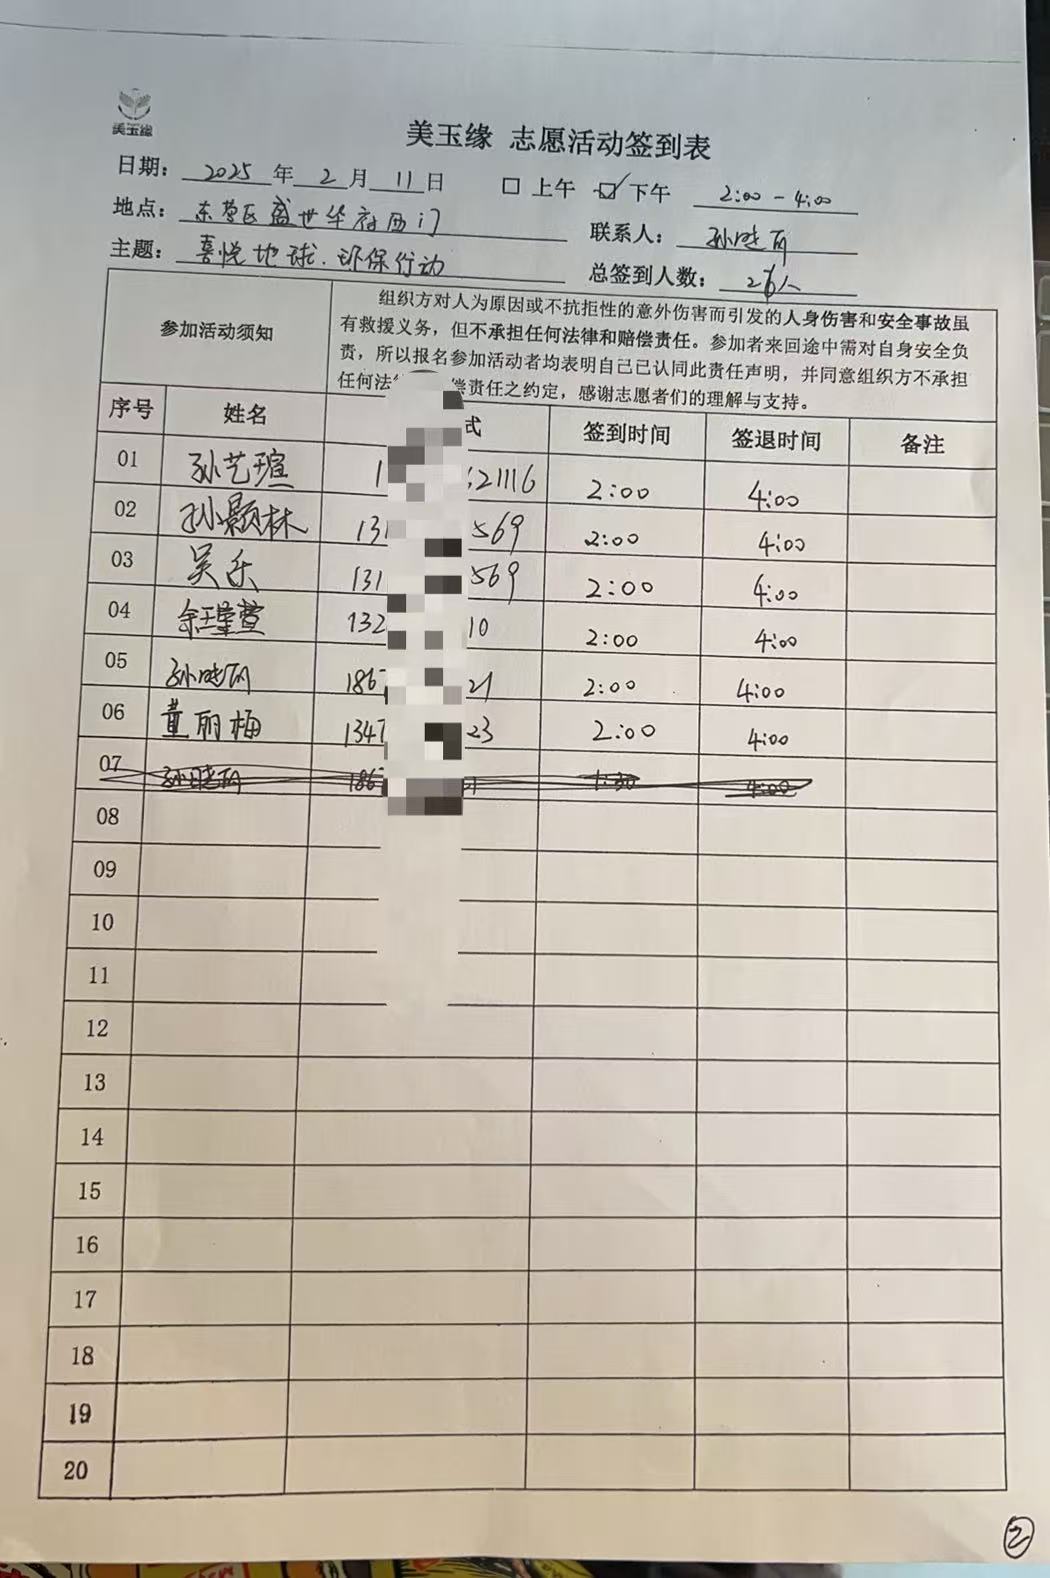 美玉缘
美玉缘 志愿活动签到表
日期: 2025 年 2 月 11 日 □ 上午 ☑ 下午 2:00 - 4:00
地点: 东营区盛世华府西门
联系人: 孙晓丽
主题: 喜悦地球.环保行动
总签到人数: 26人
参加活动须知
组织方对人为原因或不抗拒性的意外伤害而引发的人身伤害和安全事故虽
有救援义务,但不承担任何法律和赔偿责任。参加者来回途中需对自身安全负
责,所以报名参加活动者均表明自己已认同此责任声明,并同意组织方不承担
任何法 偿责任之约定,感谢志愿者们的理解与支持。
序号 姓名 式 签到时间 签退时间 备注
01 孙艺瑄 1 21116 2:00 4:00
02 孙颢林 131 569 2:00 4:00
03 吴乐 131 569 2:00 4:00
04 132 10 2:00 4:00
05 孙晓丽 186 21 2:00 4:00
06 董丽梅 1347 23 2:00 4:00
07 孙晓丽 186 1:30 4:00
08
09
10
11
12
13
14
15
16
17
18
19
20
②